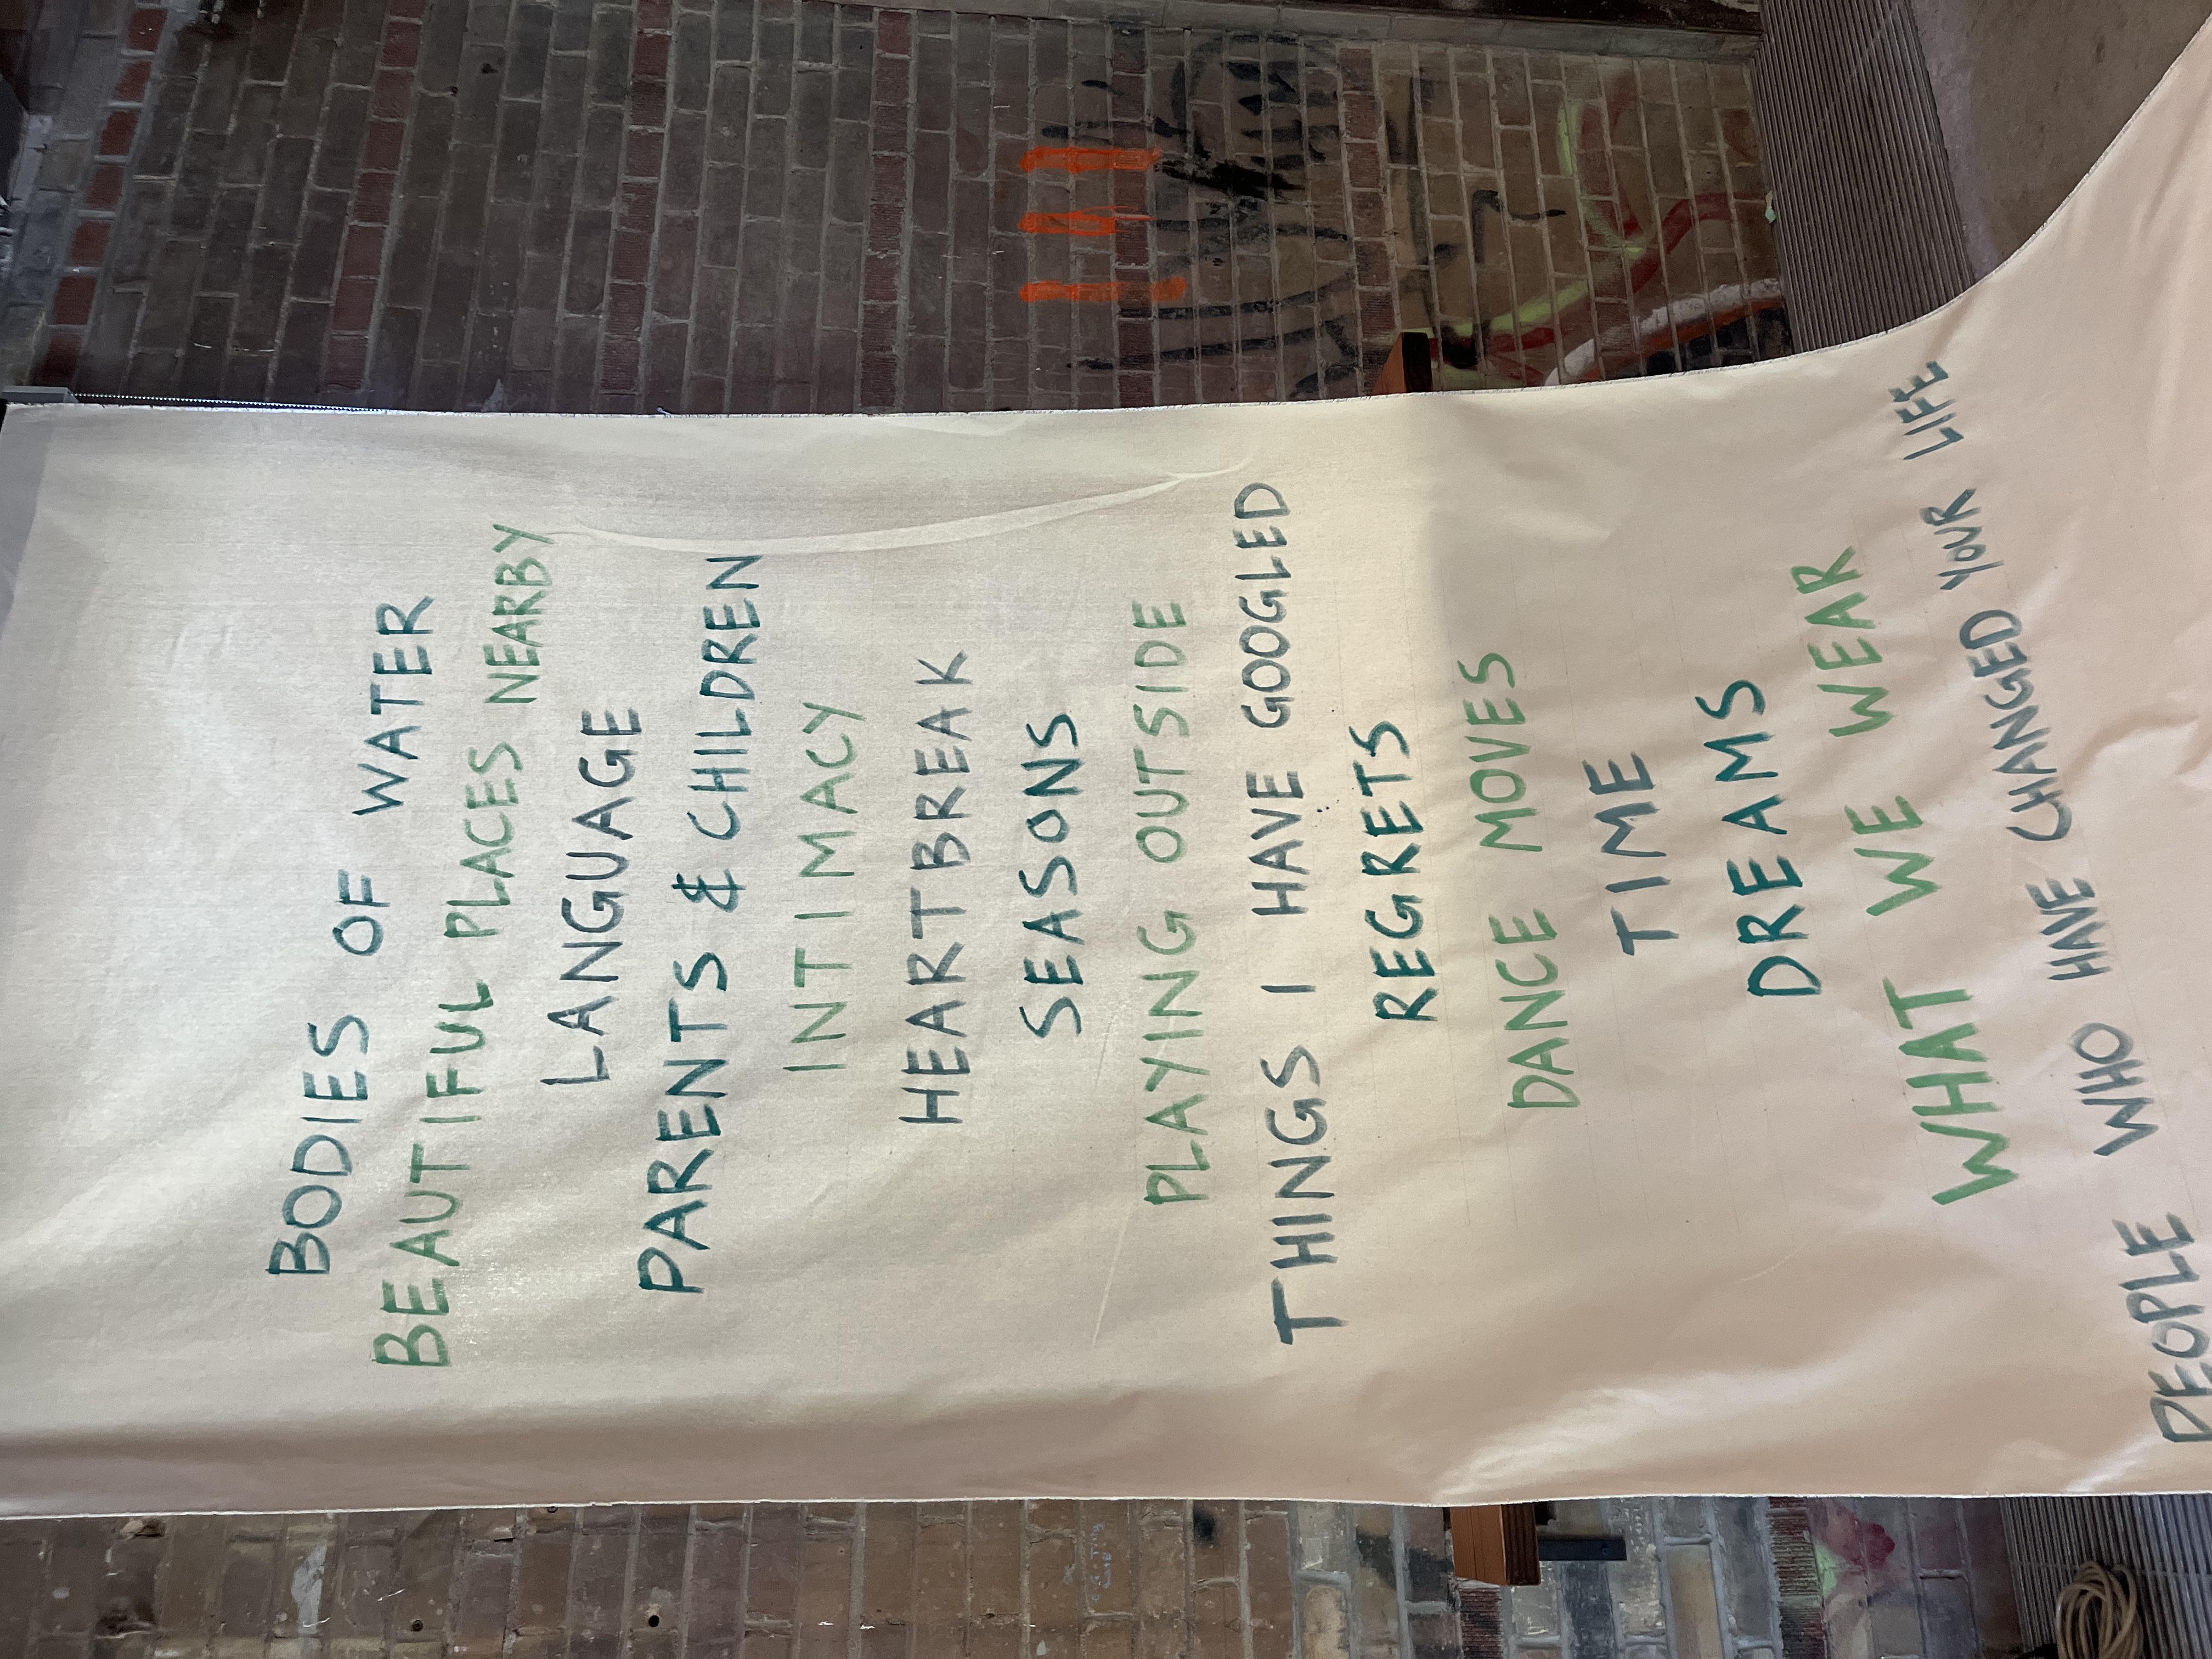 BODIES OF WATER
BEAUTIFUL PLACES NEARBY
LANGUAGE
PARENTS & CHILDREN
INTIMACY
HEARTBREAK
SEASONS
PLAYING OUTSIDE
THINGS I HAVE GOOGLED
REGRETS
DANCE MOVES
TIME
DREAMS
WHAT WE WEAR
PEOPLE WHO HAVE CHANGED YOUR LIFE